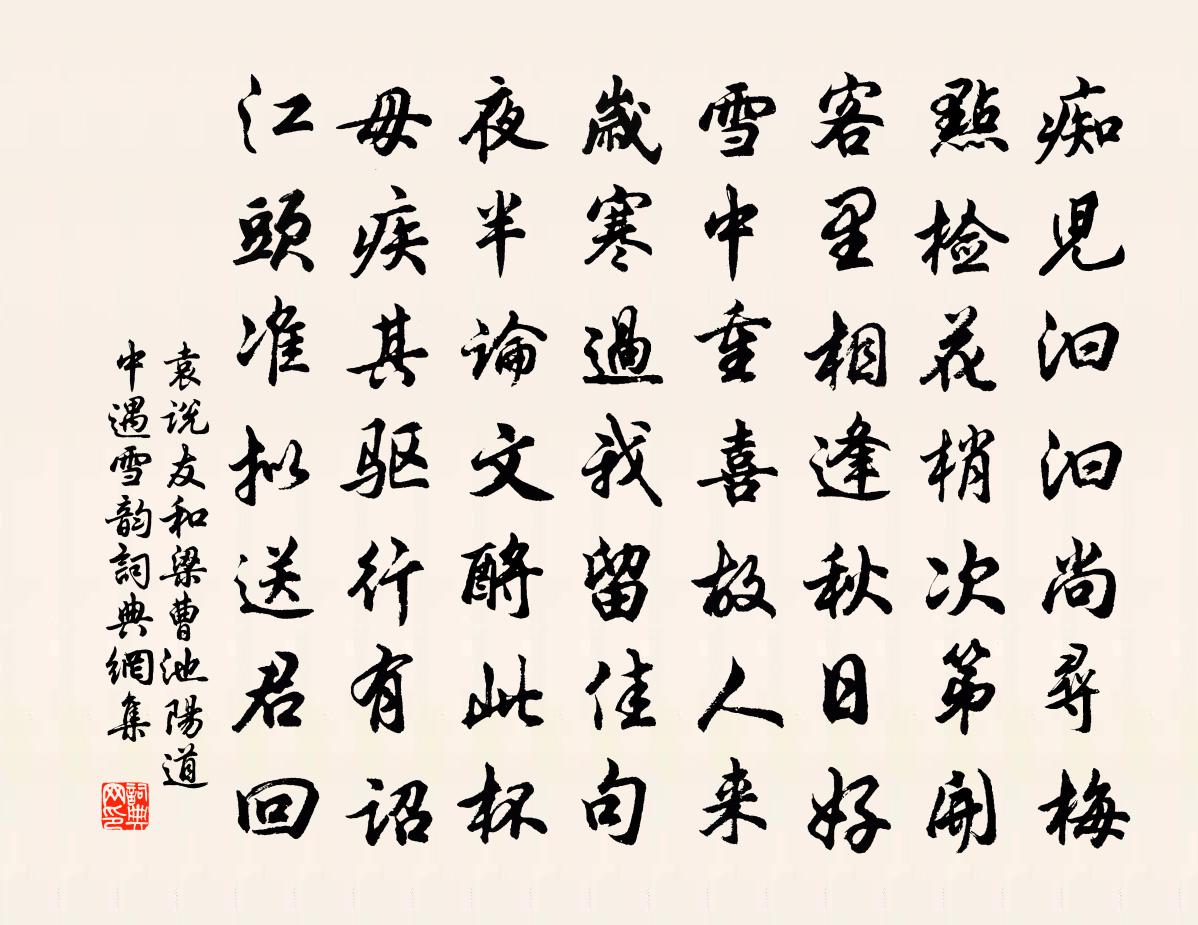 痴児汩汩尚尋梅
點检花梢次第開
客里相逢秋日好
雪中重喜故人来
歲寒過我留佳句
夜半論文酹此杯
毋疾其驱行有诏
江頭准拟送君回
袁说友和梁曹池陽道
中遇雪韵詞典網集
詞典
网印